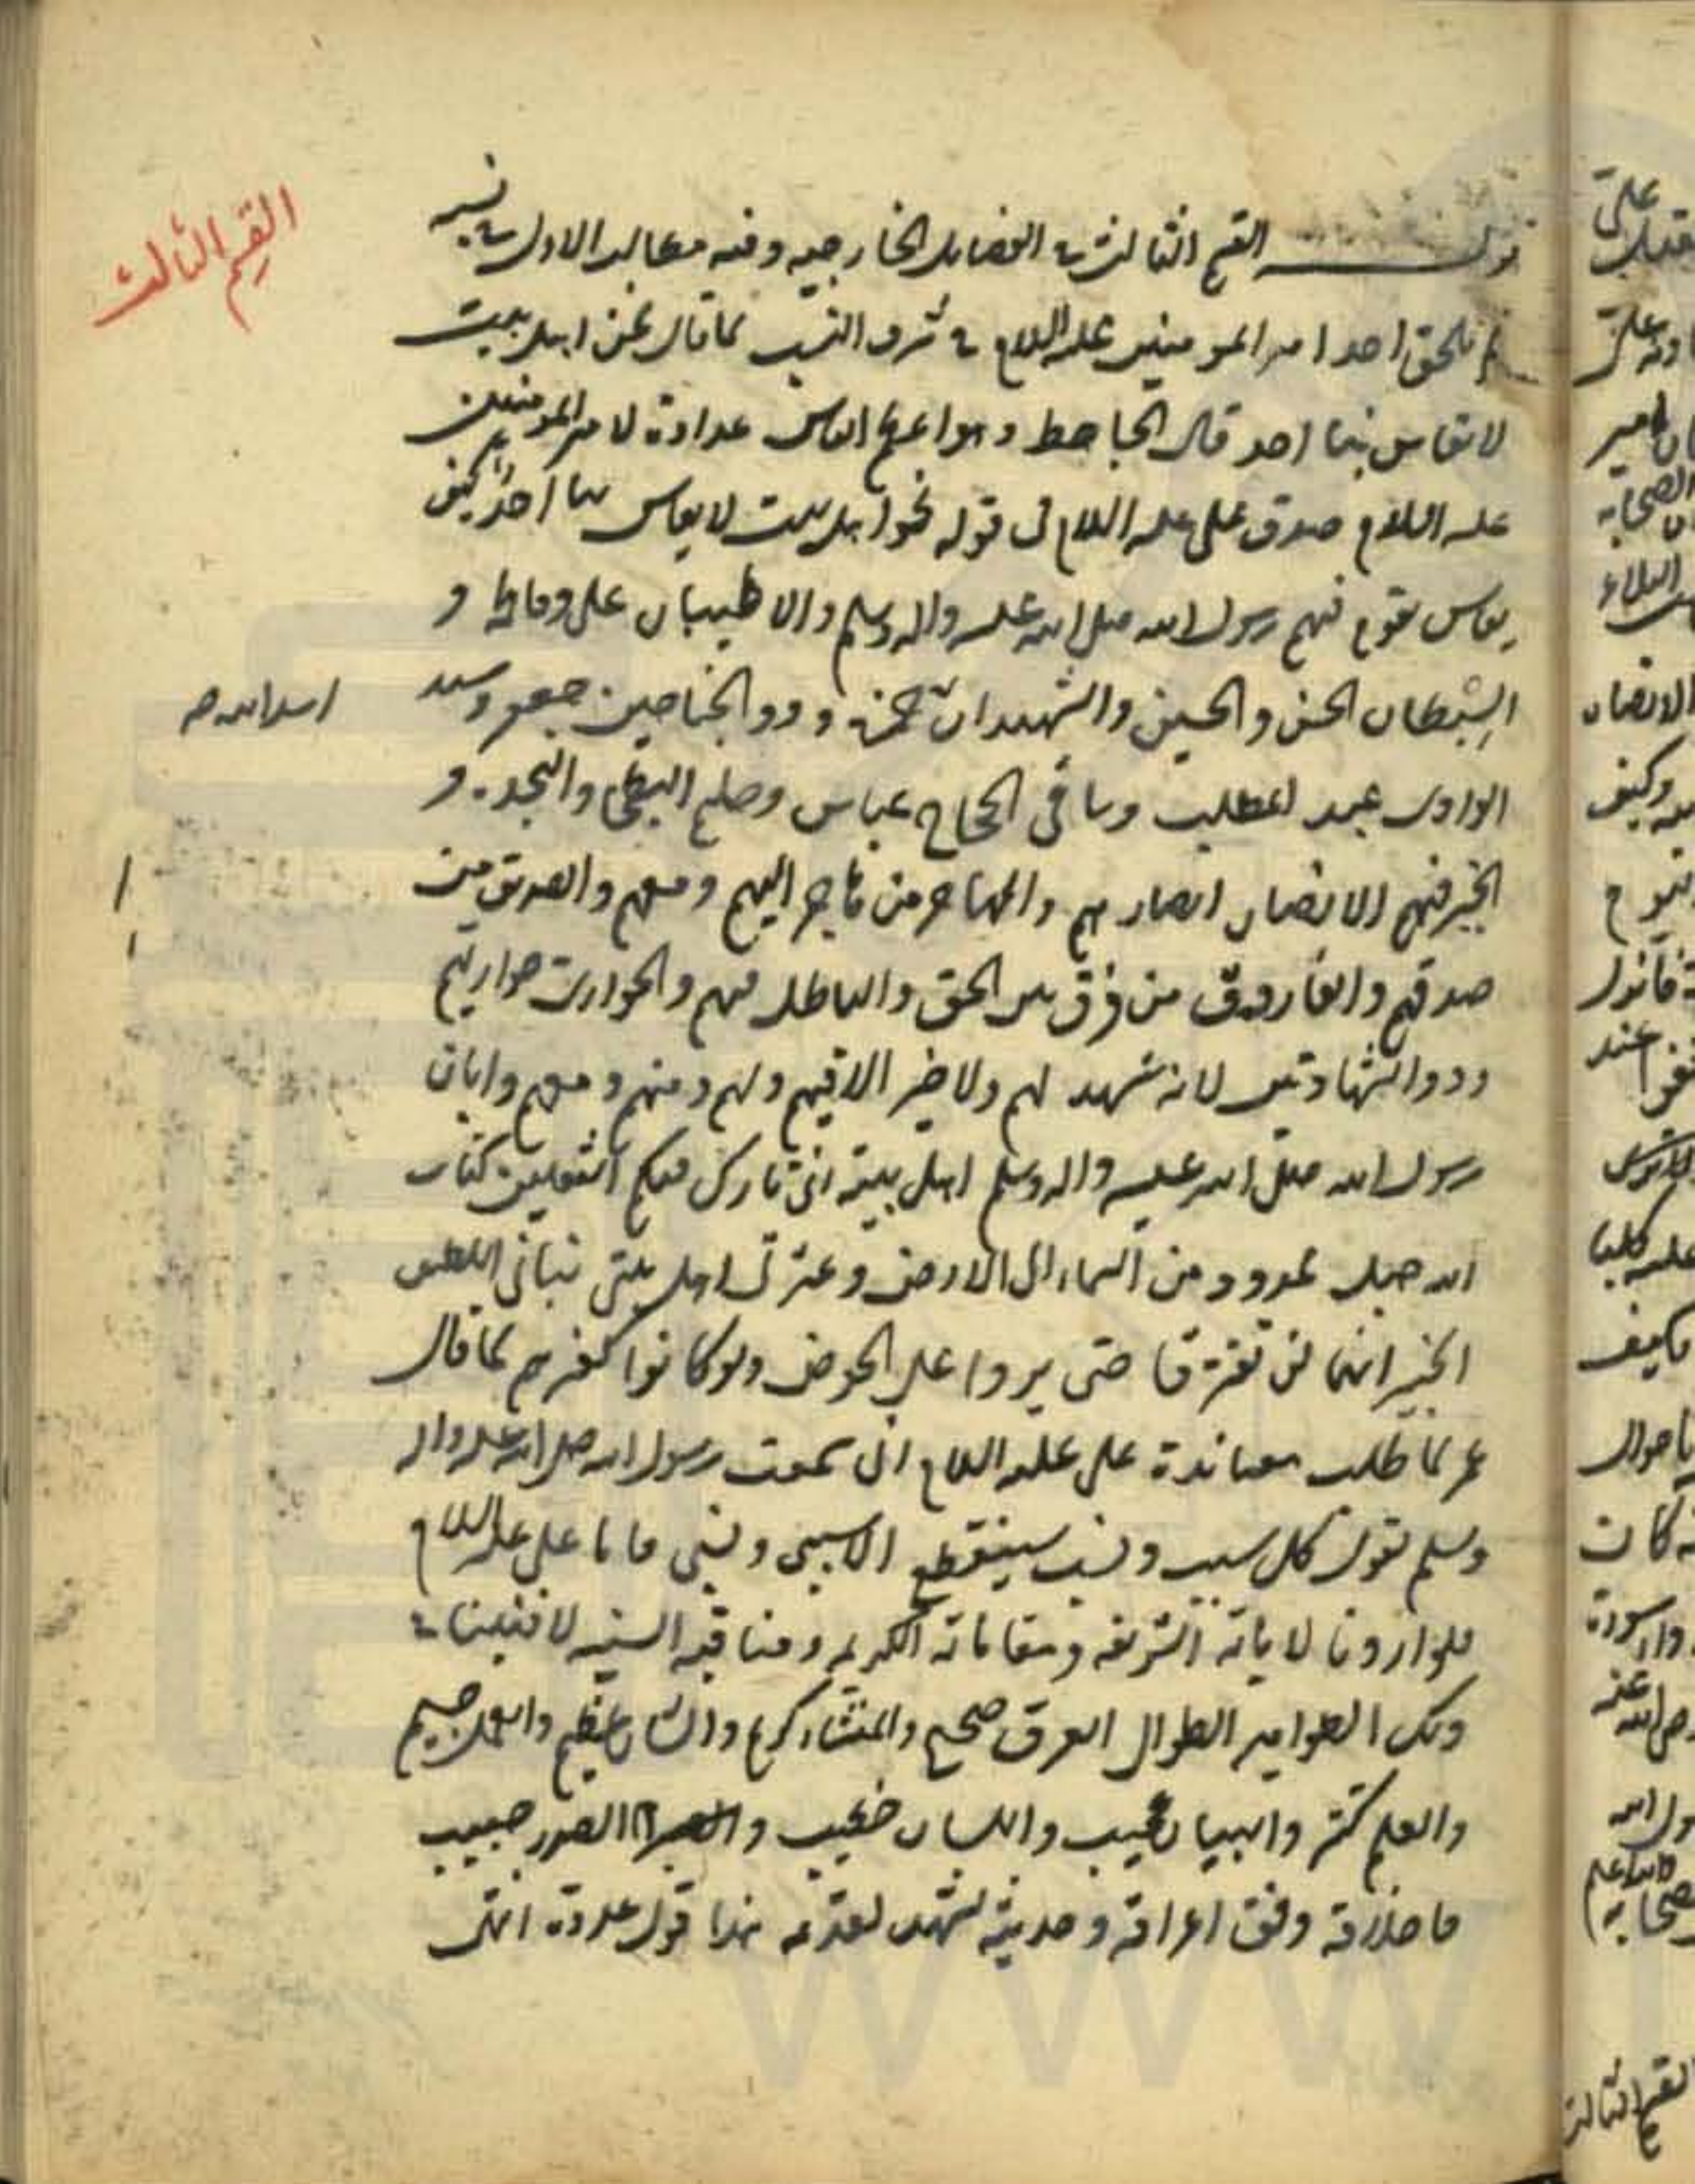 القسم الثالث
قوله القسم الثالث في الفضايل الخارجيه وفيه مطالب الاول في نسبه
لم يلحق احد امير المومنين عليه السلام في شرف النسب كما قال نحن اهل بيت
لا يقاس بنا احد قال الجاحظ وهو اعظم الناس عداوة لامير المومنين
عليه السلام صدق علي عليه السلام في قوله نحن اهل بيت لا يقاس بنا احد كيف
يقاس بقوم فيهم رسول الله صلى الله عليه واله وسلم والاطيبان علي وفاطمة و
السبطان الحسن والحسين والشهيدان حمزة وذو الجناحين جعفر وسيد
اسد الله
الوادي عبد المطلب وساقي الحجاج عباس وحليم البطحا والنجدة و
الخير فيهم الانصار انصارهم والمهاجر من هاجر اليهم ومعهم والصديق من
صدقهم والفاروق من فرق بين الحق والباطل فيهم والحواري حواريهم
وذو الشهادتين لانه شهد لهم ولا خير الا فيهم ولهم ومنهم ومعهم وابان
رسول الله صلى الله عليه واله وسلم اهل بيته اني تارك فيكم الثقلين كتاب
الله حبل ممدود من السماء الى الارض وعترتي اهل بيتي نباني اللطيف
الخبير انهما لن تفترقا حتى يردا علي الحوض ولو كانوا كغيرهم لما قال
عمر لما طلب مصاهرة علي عليه السلام اني سمعت رسول الله صلى الله عليه واله
وسلم يقول كل سبب ونسب سينقطع الا سببي ونسبي فاما علي عليه السلام
فلو اردنا لاياته الشريفه ومقاماته الكريمه ومناقبه السنيه لافنينا في
ذلك الطوامير الطوال العرق صحيح والمنشاء كريم والشان عظيم والعمل جسيم
والعلم كثير والبيان عجيب واللسان خطيب والصدر رحيب
فاخلاقه وفق اعراقه وحديثه يشهد لقديمه هذا قول عدوه انتهى